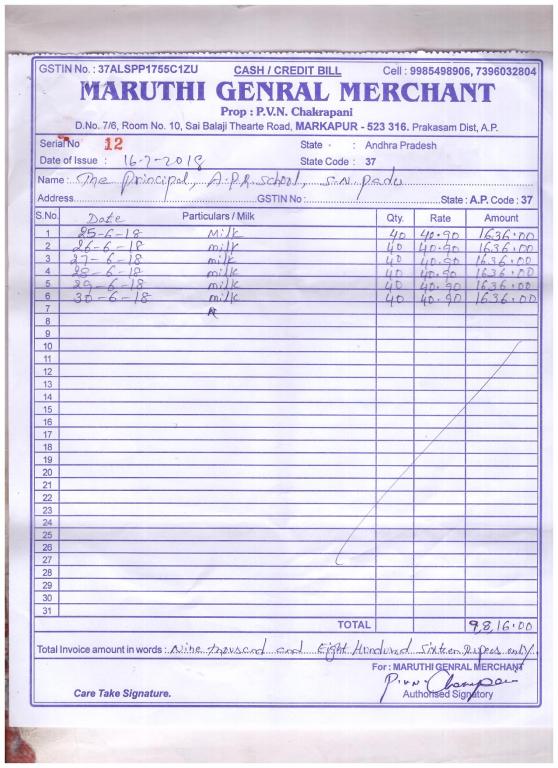 GSTIN No. : 37ALSPP1755C1ZU CASH / CREDIT BILL Cell : 9985498906, 7396032804
MARUTHI GENRAL MERCHANT
Prop : P.V.N. Chakrapani
D.No. 7/6, Room No. 10, Sai Balaji Thearte Road, MARKAPUR - 523 316. Prakasam Dist, A.P.
Serial No 12 State : Andhra Pradesh
Date of Issue : 16-7-2018 State Code : 37
Name : The Principal, A.P.R. School, S.N. Padu
Address GSTIN No : State : A.P. Code : 37
S.No. Date Particulars / Milk Qty. Rate Amount
1 25-6-18 Milk 40 40.90 1636.00
2 26-6-18 milk 40 40.90 1636.00
3 27-6-18 milk 40 40.90 1636.00
4 28-6-18 milk 40 40.90 1636.00
5 29-6-18 milk 40 40.90 1636.00
6 30-6-18 milk 40 40.90 1636.00
7
8
9
10
11
12
13
14
15
16
17
18
19
20
21
22
23
24
25
26
27
28
29
30
31
TOTAL 98,16.00
Total Invoice amount in words : Nine thousand and Eight Hundred Sixteen Rupees only.
For : MARUTHI GENRAL MERCHANT
Care Take Signature. Authorised Signatory